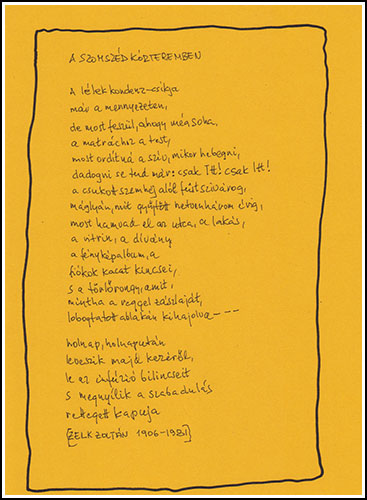 A SZOMSZÉD KÓRTEREMBEN
A lélek kondenz-csíkja
már a mennyezeten,
de most feszül, ahogy még soha,
a matrachoz a test,
most ordítna a szív, mikor hebegni,
dadogni se tud már: csak Itt! csak Itt!
a csukott szemhéj alól füst szivárog,
máglyán, mit gyűjtött hetvenhárom évig,
most hamvad el az utca, a lakás,
a vitrin, a dívány
a fényképalbum, a
fiókok kacat kincsei,
s a törlőrongy, amit,
mintha a reggel zászlaját,
lobogtatott ablakán kihajolva - - -
holnap, holnapután
leveszik majd kezéről,
le az infúzió bilincseit
s megnyílik a szabadulás
rettegett kapuja
[ZELK ZOLTÁN 1906-1981]